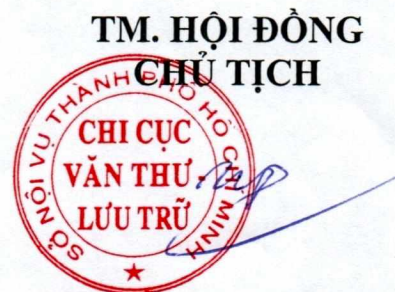 TM. HỘI ĐỒNG
CHỦ TỊCH
SỞ NỘI VỤ THÀNH PHỐ HỒ CHÍ MINH
CHI CỤC
VĂN THƯ -
LƯU TRỮ